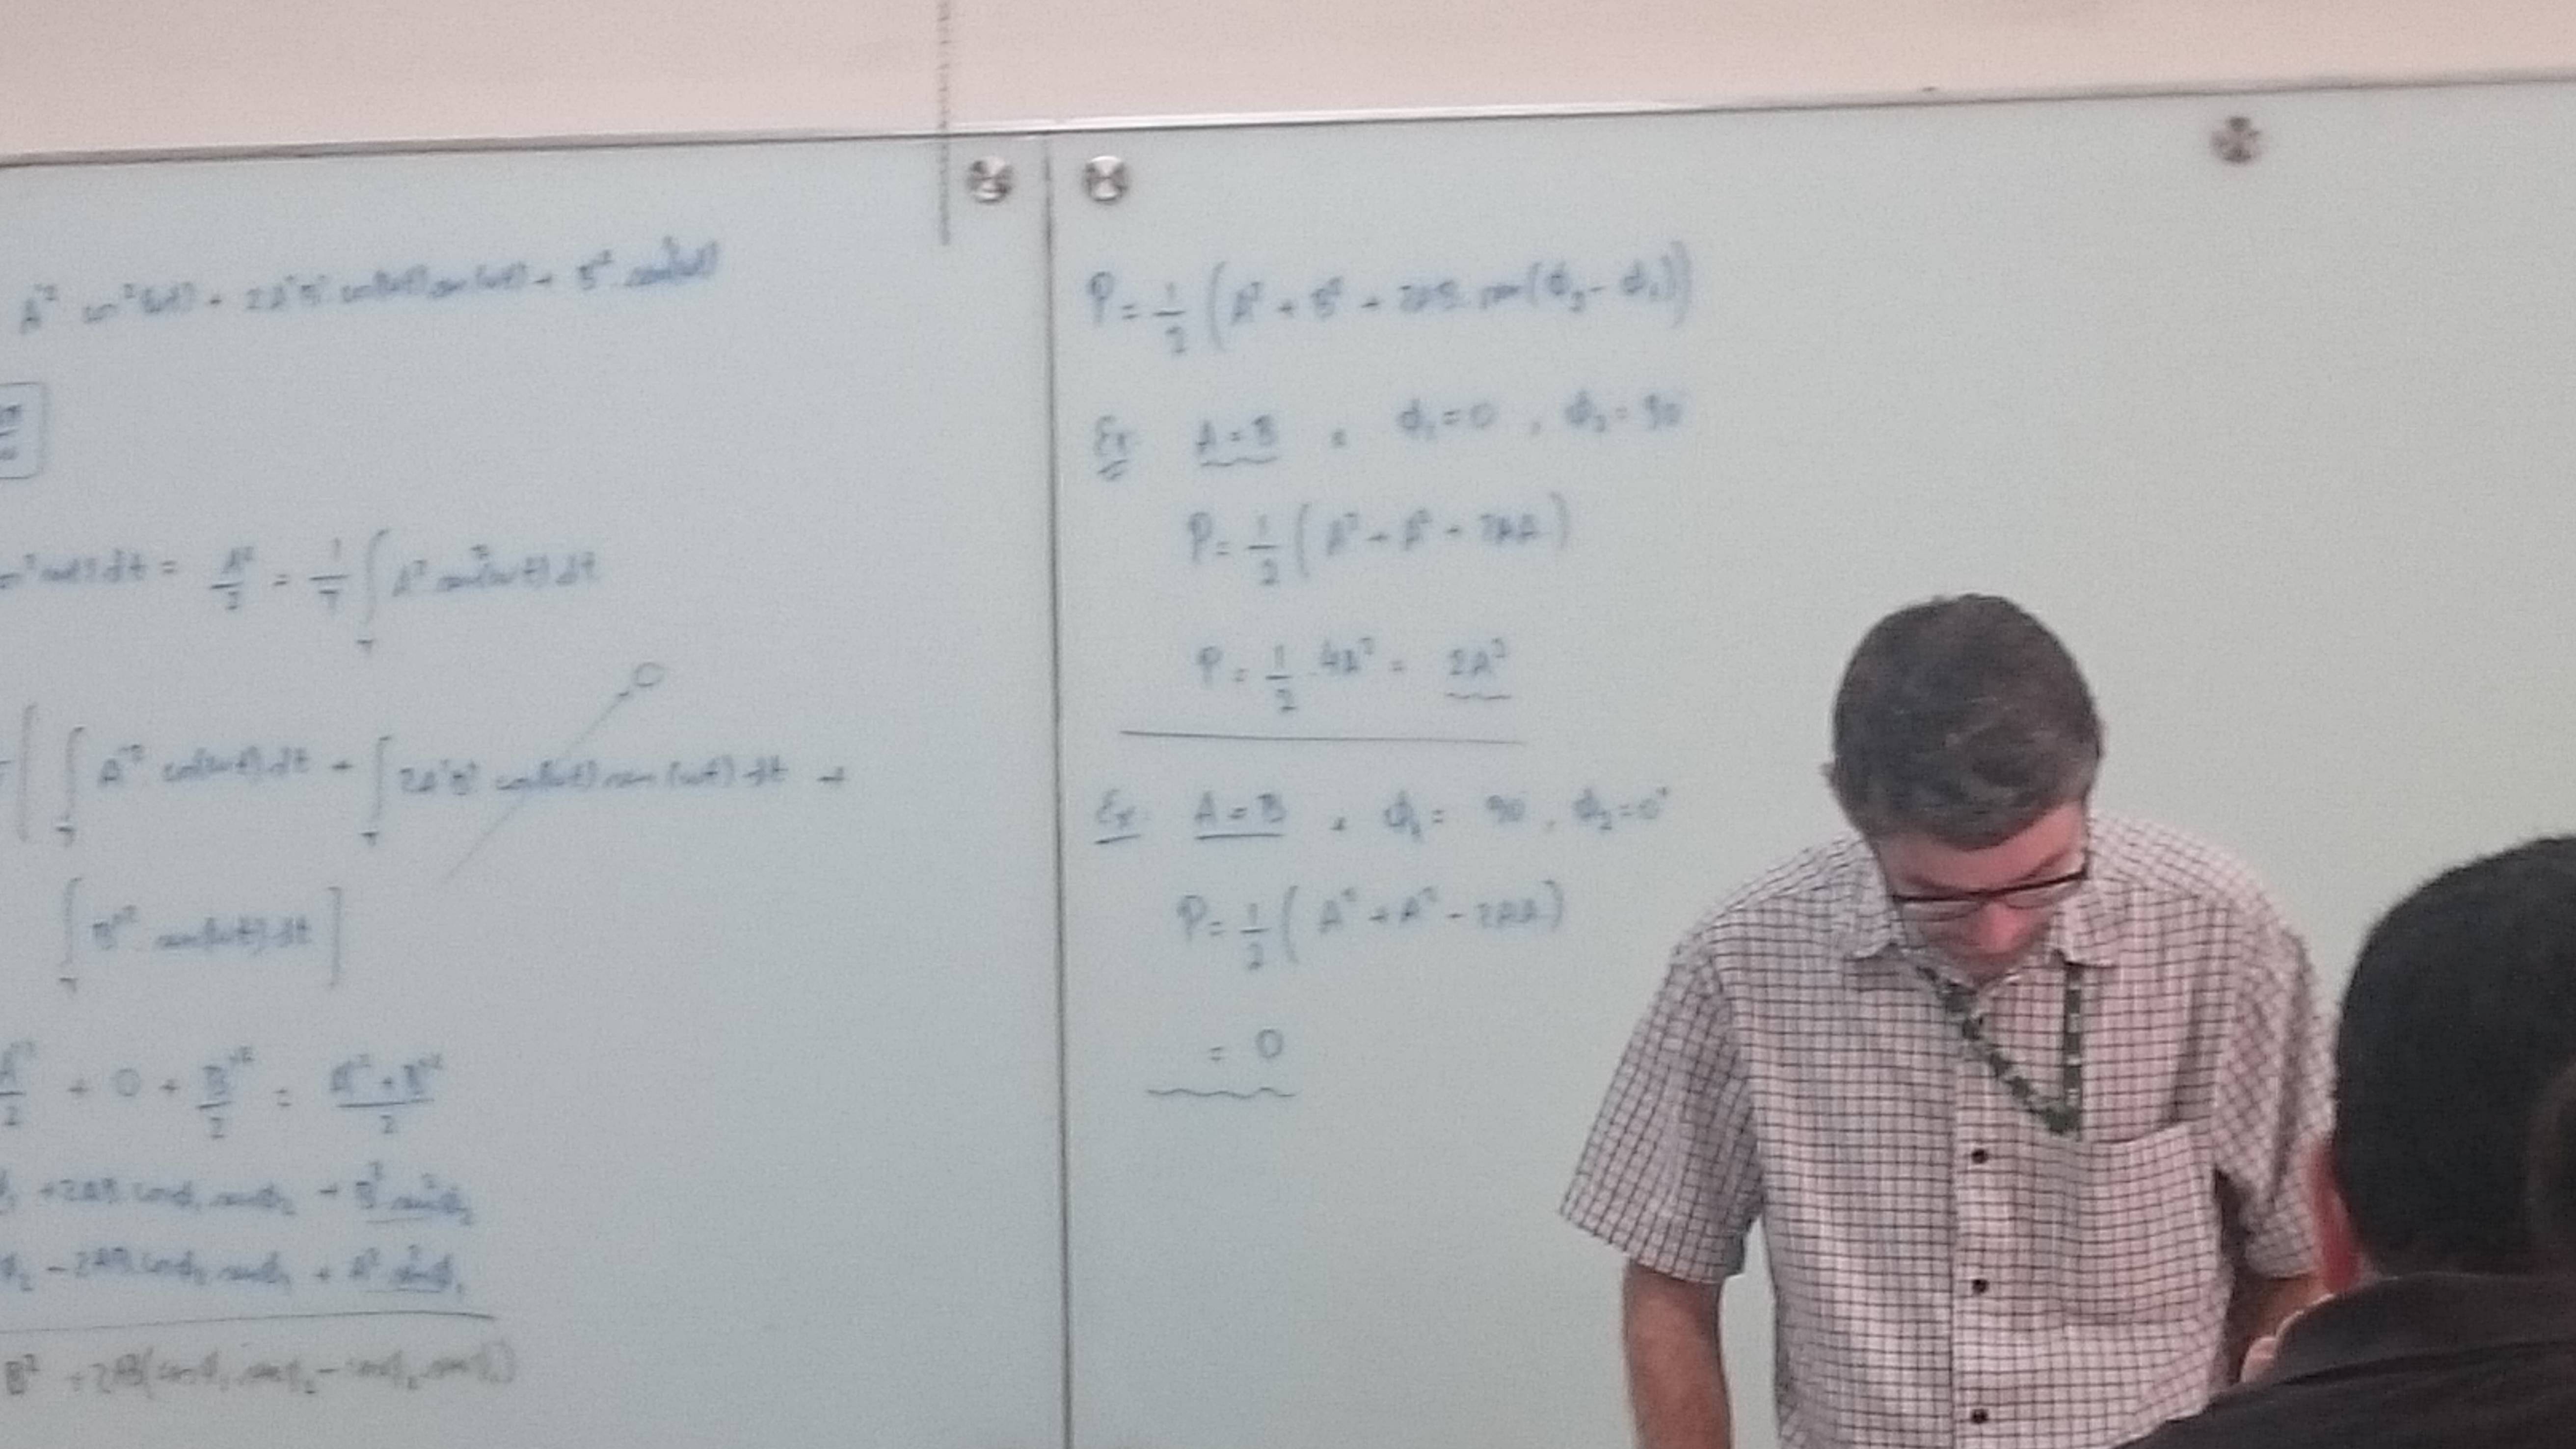 A'² cos²(ωt) + 2A'B' cos(ωt) sen(ωt) + B'² sen²(ωt)
dt = A²/2 = 1/T ∫_T A² sen²(ωt) dt
[ ∫_T A'² cos²(ωt) dt + ∫_T 2A'B' cos(ωt) sen(ωt) dt + → 0
∫_T B'² sen²(ωt) dt ]
A'²/2 + 0 + B'²/2 = (A'² + B'²)/2
+ 2AB cosφ₁ senφ₂ + B² sen²φ₂
φ₂ - 2AB cosφ₂ senφ₁ + A² sen²φ₁
B² + 2AB(cosφ₁ senφ₂ - cosφ₂ senφ₁)
P = 1/2 (A² + B² + 2AB. sen(φ₂ - φ₁))
Ex: A = B , φ₁ = 0 , φ₂ = 90
P = 1/2 (A² + A² + 2AA)
P = 1/2 . 4A² = 2A²
Ex: A = B , φ₁ = 90 , φ₂ = 0°
P = 1/2 ( A² + A² - 2AA)
= 0